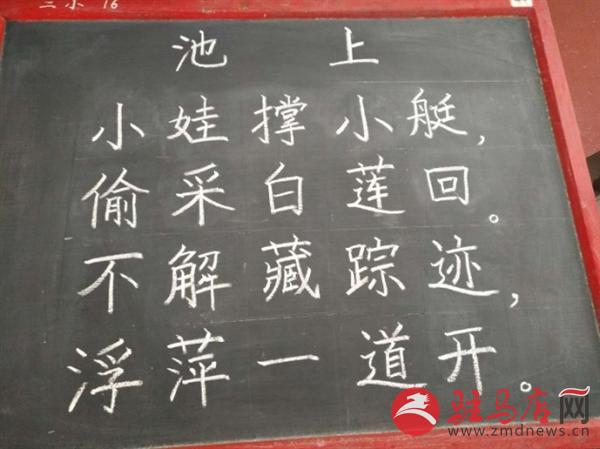 三小 16
池上
小娃撑小艇，
偷采白莲回。
不解藏踪迹，
浮萍一道开。
驻马店网
www.zmdnews.cn